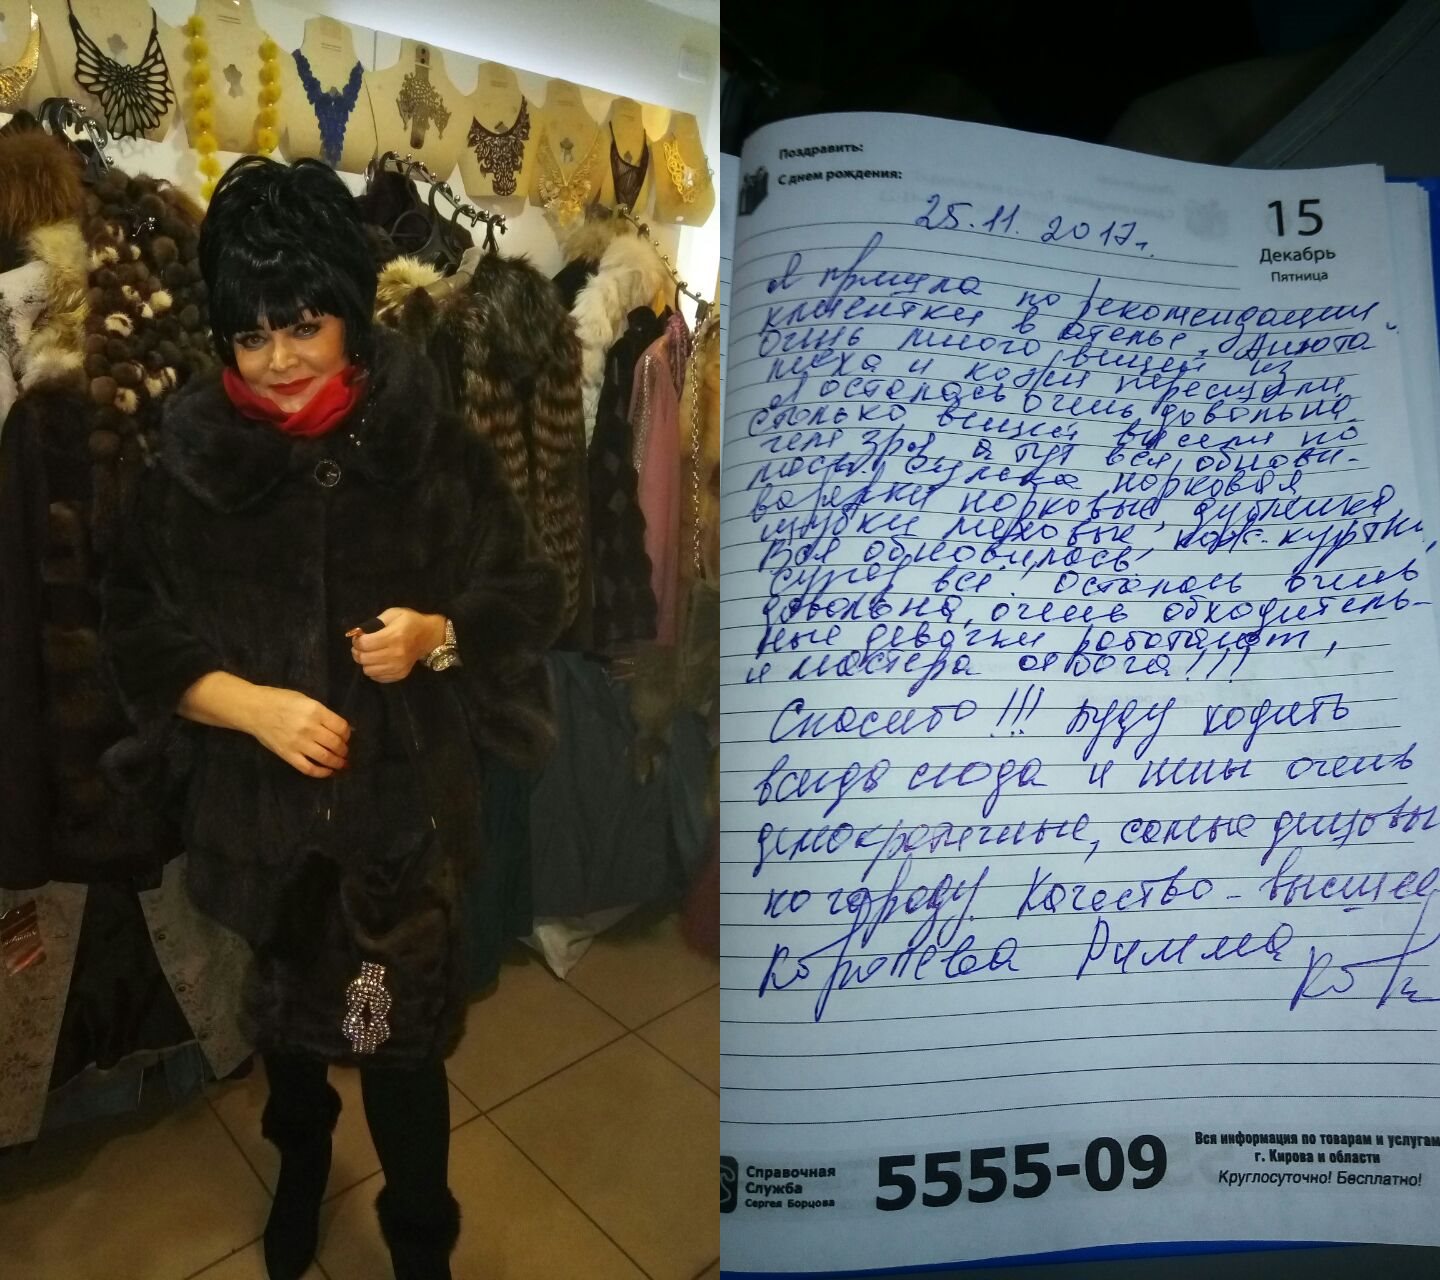 Поздравить:
С днем рождения:
15
Декабрь
Пятница
25.11.2017г.
Я пришла по рекомендации
клиентки в ателье "Анюта".
Очень много вещей из
меха и кожи перешили,
Я осталась очень довольна.
столько вещей висели по
чем зря, а тут вся обнови-
лась! Шубка норковая
варежки норковые, дубленка
шубки меховые, кож. куртки,
Вся обновилась,
все. Осталась очень
довольна, очень обходитель-
ные девочки работают,
и мастера от бога!!!
Спасибо!!! Буду ходить
всегда сюда и цены очень
демократичные, самые дешовые
по городу. Качество - высшее
Римма
Справочная
Служба
Сергея Борцова
5555-09
Вся информация по товарам и услугам
г. Кирова и области
Круглосуточно! Бесплатно!